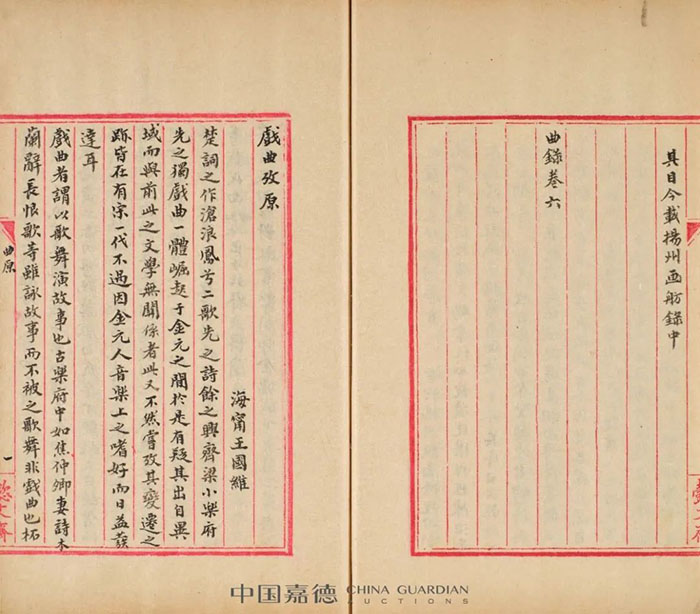 其目今載揚州画舫錄中
曲錄卷六
戲曲攷原
海甯王國維
楚詞之作滄浪鳳兮二歌先之詩餘之興齊梁小樂府
先之獨戲曲一體崛起于金元之間於是有疑其出自異
域而與前此之文學無關係者此又不然嘗攷其變遷之
跡皆在有宋一代不過因金元人音樂上之嗜好而日益發
達耳
戲曲者謂以歌舞演故事也古樂府中如焦仲卿妻詩木
蘭辭長恨歌等雖詠故事而不被之歌舞非戲曲也柘
曲原
一
中国嘉德 CHINA GUARDIAN
AUCTIONS